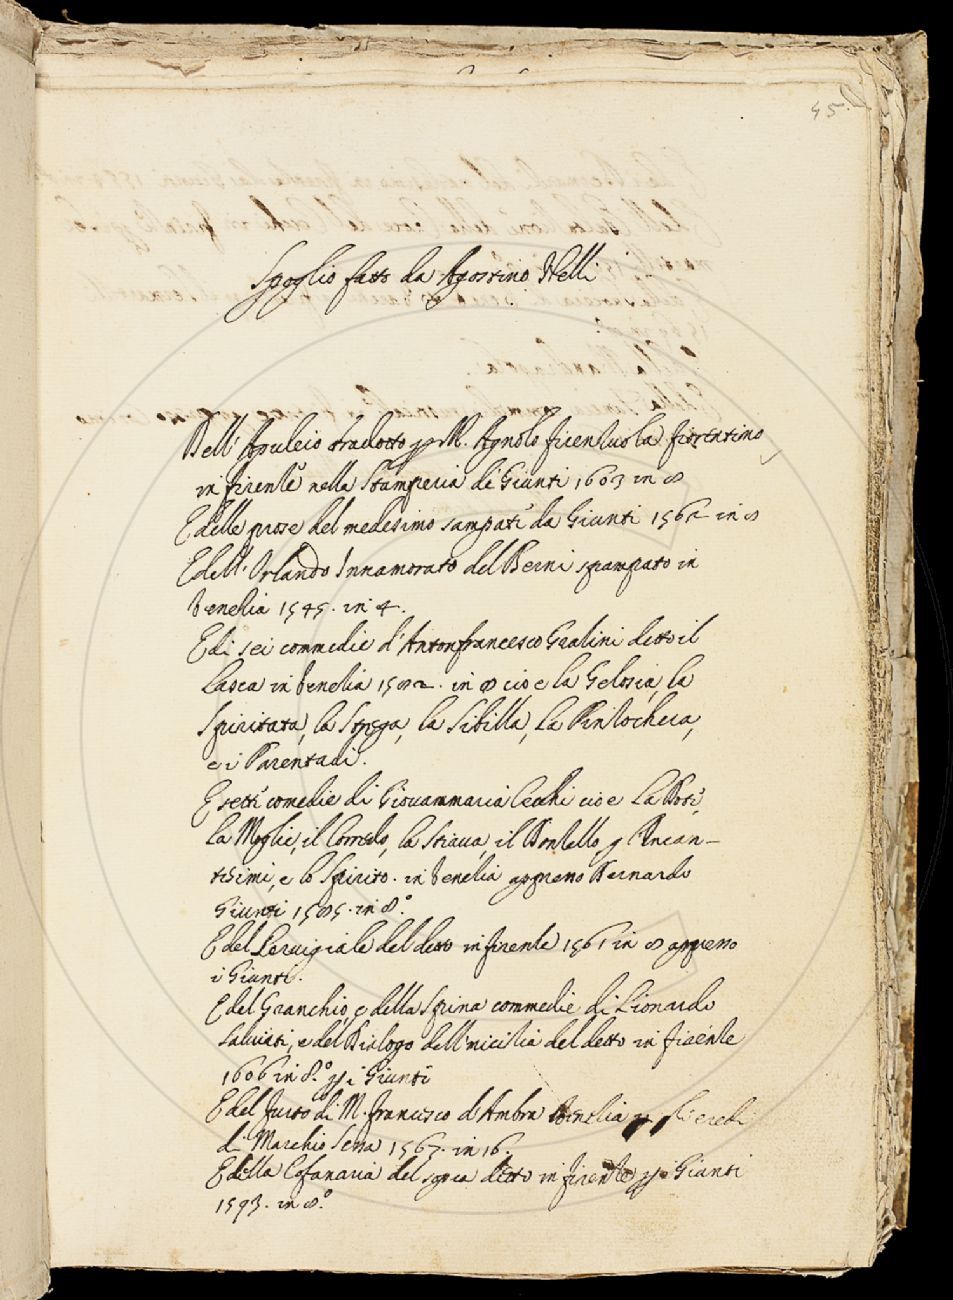 45.
Spoglio fatto da Agostino Nelli
Dell' Apuleio tradotto p M. Agnolo firenzuola fiorentino
in firenze nella Stamperia de Giunti 1603 in 8
E delle prose del medesimo sampati da Giunti 1562 in 8
E dell' Orlando Innamorato del Berni stampato in
Venezia 1545. in 4.
E di sei commedie d'Antonfrancesco Grazini detto il
Lasca in Venezia 1582. in 8 cioe la Gelosia, la
Spiritata, la Strega, la Sibilla, la Pinzochera,
e i Parentadi.
E sette comedie di Giovammaria Cecchi cioe La Dote,
La Moglie, il Corredo, la Stiava, il Donzello, gl' Incan-
tesimi, e lo Spirito. in Venezia appresso Bernardo
Giunti 1585. in 8.º
E del Servigiale del detto in firenze 1561 in 8 appresso
i Giunti.
E del Granchio, e della Spina commedie di Lionardo
Salviati, e del Dialogo dell'Amicizia del detto in firenze
1606 in 8.º p i Giunti
E del furto di M. francesco d'Ambra Venezia p gli eredi
di Marchio Sessa 1567. in 16.
E della Cofanaria del sopra detto in firenze p i Giunti
1593. in 8.º